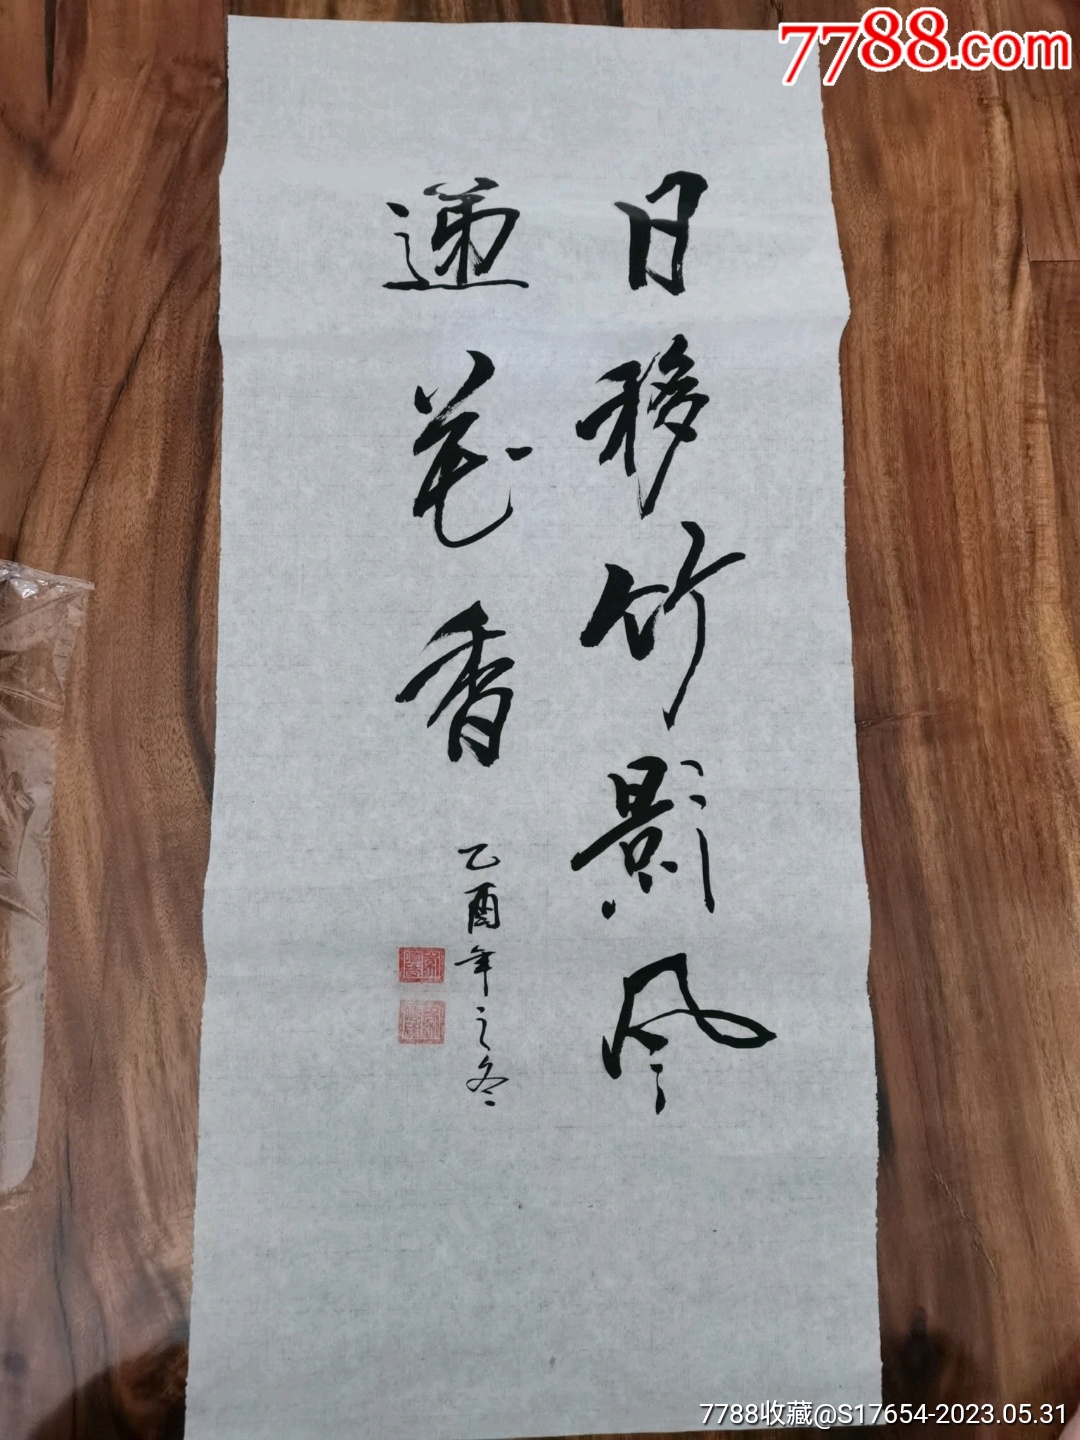 7788.com
日移竹影风
递花香
乙酉年之冬
7788收藏@S17654-2023.05.31